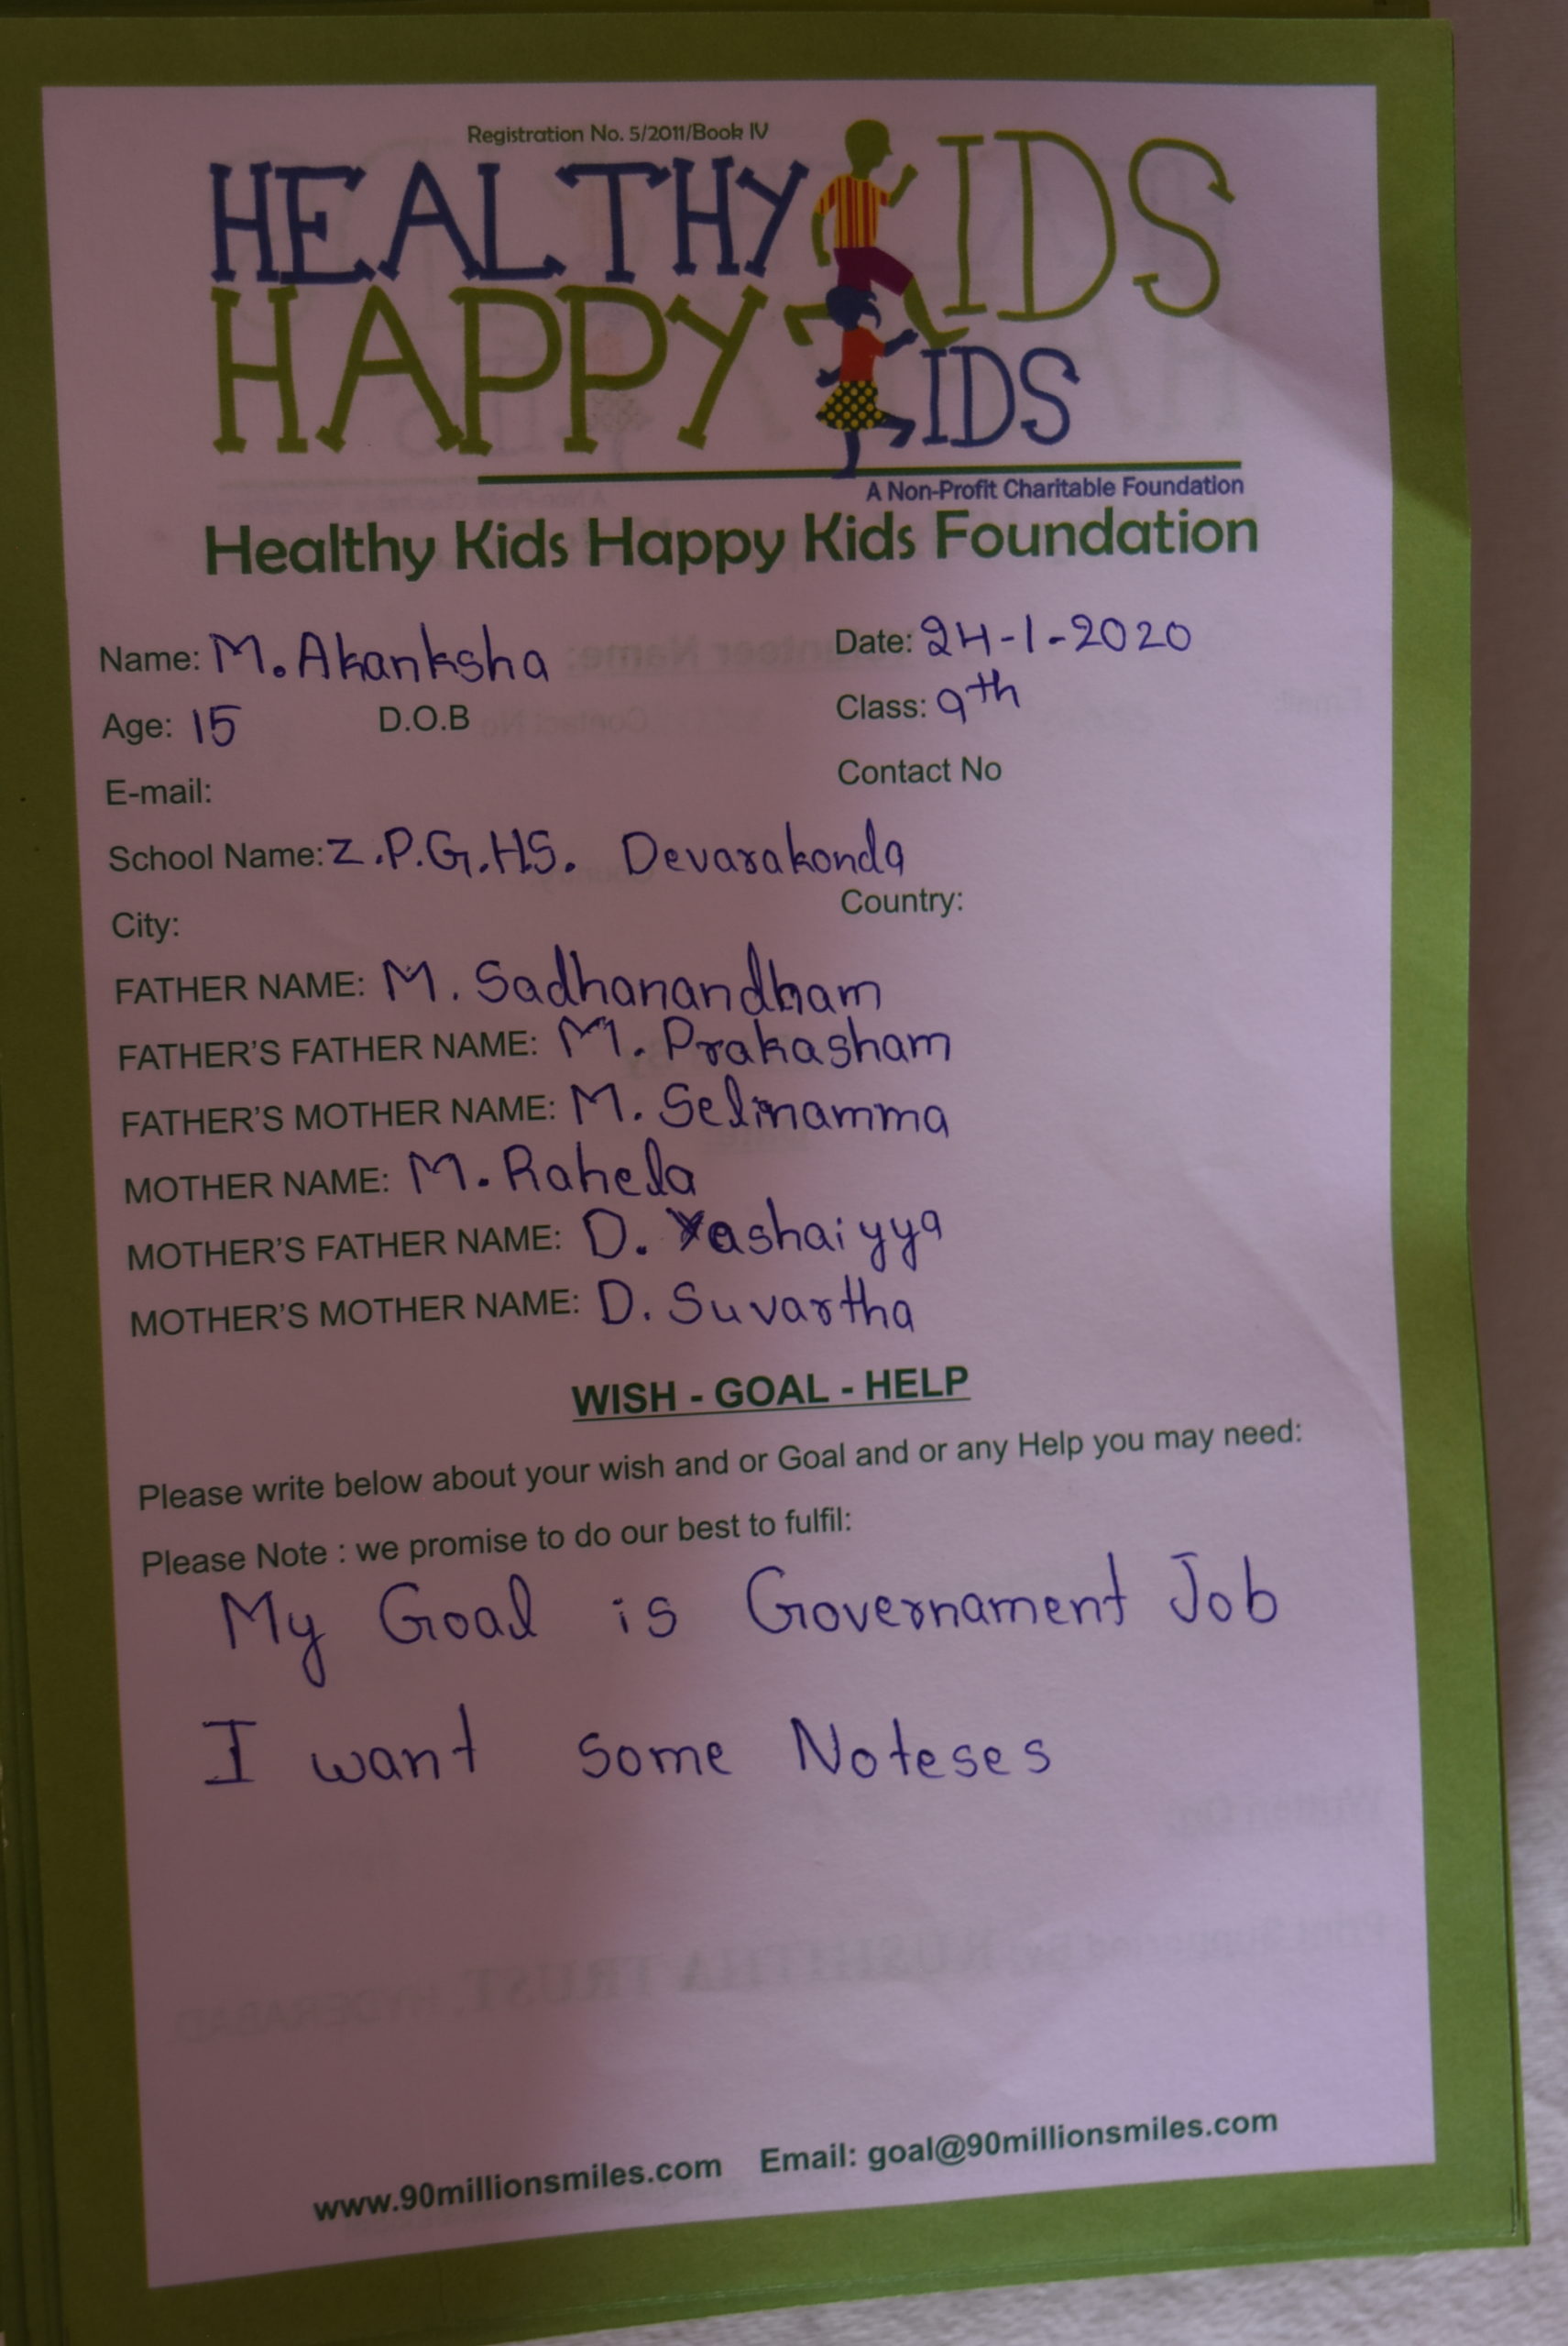 Registration No. 5/2011/Book IV
HEALTHY KIDS
HAPPY KIDS
A Non-Profit Charitable Foundation
Healthy Kids Happy Kids Foundation
Name: M. Akanksha Date: 24-1-2020
Age: 15 D.O.B Class: 9th
E-mail: Contact No
School Name: Z.P.G.HS. Devarakonda
City: Country:
FATHER NAME: M. Sadhanandham
FATHER'S FATHER NAME: M. Prakasham
FATHER'S MOTHER NAME: M. Selinamma
MOTHER NAME: M. Rahela
MOTHER'S FATHER NAME: D. Yashaiyya
MOTHER'S MOTHER NAME: D. Suvartha
WISH - GOAL - HELP
Please write below about your wish and or Goal and or any Help you may need:
Please Note : we promise to do our best to fulfil:
My Goal is Governament Job
I want some Noteses
www.90millionsmiles.com Email: goal@90millionsmiles.com